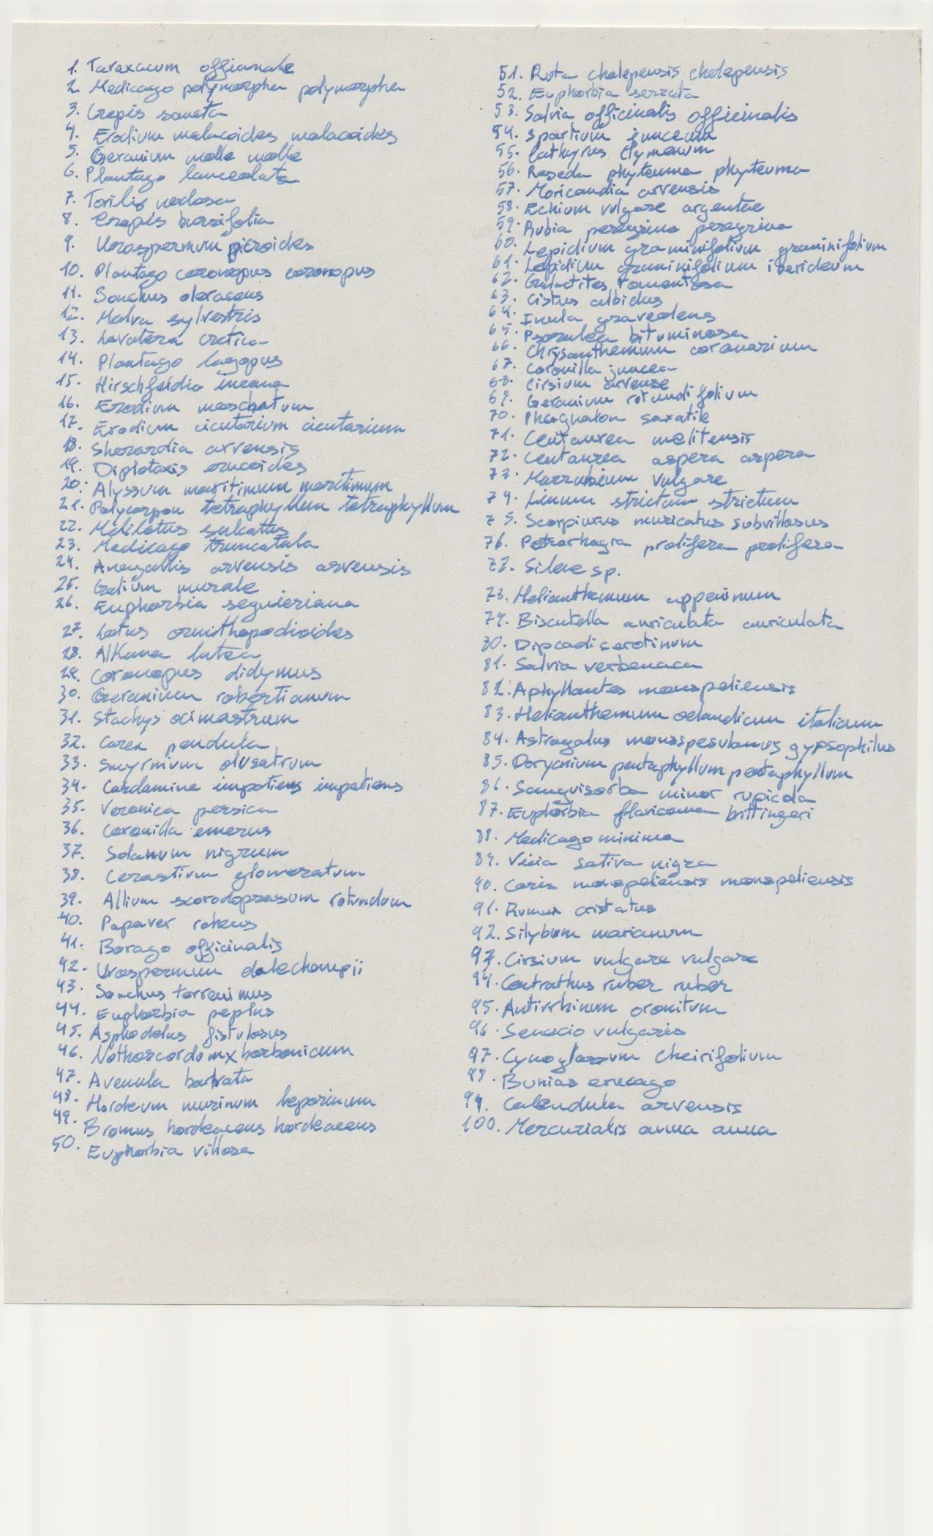 1. Taraxacum officinale
2. Medicago polymorpha polymorpha
3. Crepis sancta
4. Erodium malacoides malacoides
5. Geranium molle molle
6. Plantago lanceolata
7. Torilis nodosa
8. Crepis bursifolia
9. Urospermum picroides
10. Plantago coronopus coronopus
11. Sonchus oleraceus
12. Malva sylvestris
13. Lavatera cretica
14. Plantago lagopus
15. Hirschfeldia incana
16. Erodium moschatum
17. Erodium cicutarium cicutarium
18. Sherardia arvensis
19. Diplotaxis erucoides
20. Alyssum maritimum maritimum
21. Polycarpon tetraphyllum tetraphyllum
22. Melilotus sulcatus
23. Medicago truncatula
24. Anagallis arvensis arvensis
25. Galium murale
26. Euphorbia seguieriana
27. Lotus ornithopodioides
28. Alkana lutea
29. Coronopus didymus
30. Geranium robertianum
31. Stachys ocimastrum
32. Carex pendula
33. Smyrnium olusatrum
34. Cardamine impatiens impatiens
35. Veronica persica
36. Coronilla emerus
37. Solanum nigrum
38. Cerastium glomeratum
39. Allium scorodoprasum rotundum
40. Papaver roheas
41. Borago officinalis
42. Urospermum dalechampii
43. Sonchus terrenimus
44. Euphorbia peplus
45. Asphodelus fistulosus
46. Nothoscordum x borbonicum
47. Avenula barbata
48. Hordeum murinum leporinum
49. Bromus hordeaceus hordeaceus
50. Euphorbia villosa
51. Ruta chalepensis chalepensis
52. Euphorbia serrata
53. Salvia officinalis officinalis
54. Spartium junceum
55. Lathyrus clymenum
56. Reseda phyteuma phyteuma
57. Moricandia arvensis
58. Echium vulgare argentae
59. Rubia peregrina peregrina
60. Lepidium graminifolium graminifolium
61. Lepidium graminifolium iberideum
62. Galactites tomentosa
63. Cistus albidus
64. Inula graveolens
65. Psoralea bituminosa
66. Chrysanthemum coronarium
67. Coronilla juncea
68. Cirsium arvense
69. Geranium rotundifolium
70. Phagnalon saxatile
71. Centaurea melitensis
72. Centaurea aspera aspera
73. Marrubium vulgare
74. Linum strictum strictum
75. Scorpiurus muricatus subvillosus
76. Petrorhagia prolifera prolifera
77. Silene sp.
78. Helianthemum appeninum
79. Biscutella auriculata auriculata
80. Dipcadi serotinum
81. Salvia verbenaca
82. Aphyllantes monspeliensis
83. Helianthemum oelandicum italicum
84. Astragalus monspesulanus gypsophilus
85. Dorycnium pentaphyllum pentaphyllum
86. Sanguisorba minor rupicola
87. Euphorbia flavicoma brittingeri
88. Medicago minima
89. Vicia sativa nigra
90. Coris monspeliensis monspeliensis
91. Rumex cristatus
92. Silybum marianum
93. Cirsium vulgare vulgare
94. Centrathus ruber ruber
95. Antirrhinum orontium
96. Senecio vulgaris
97. Cynoglossum cheirifolium
98. Bunias erucago
99. Calendula arvensis
100. Mercurialis annua annua